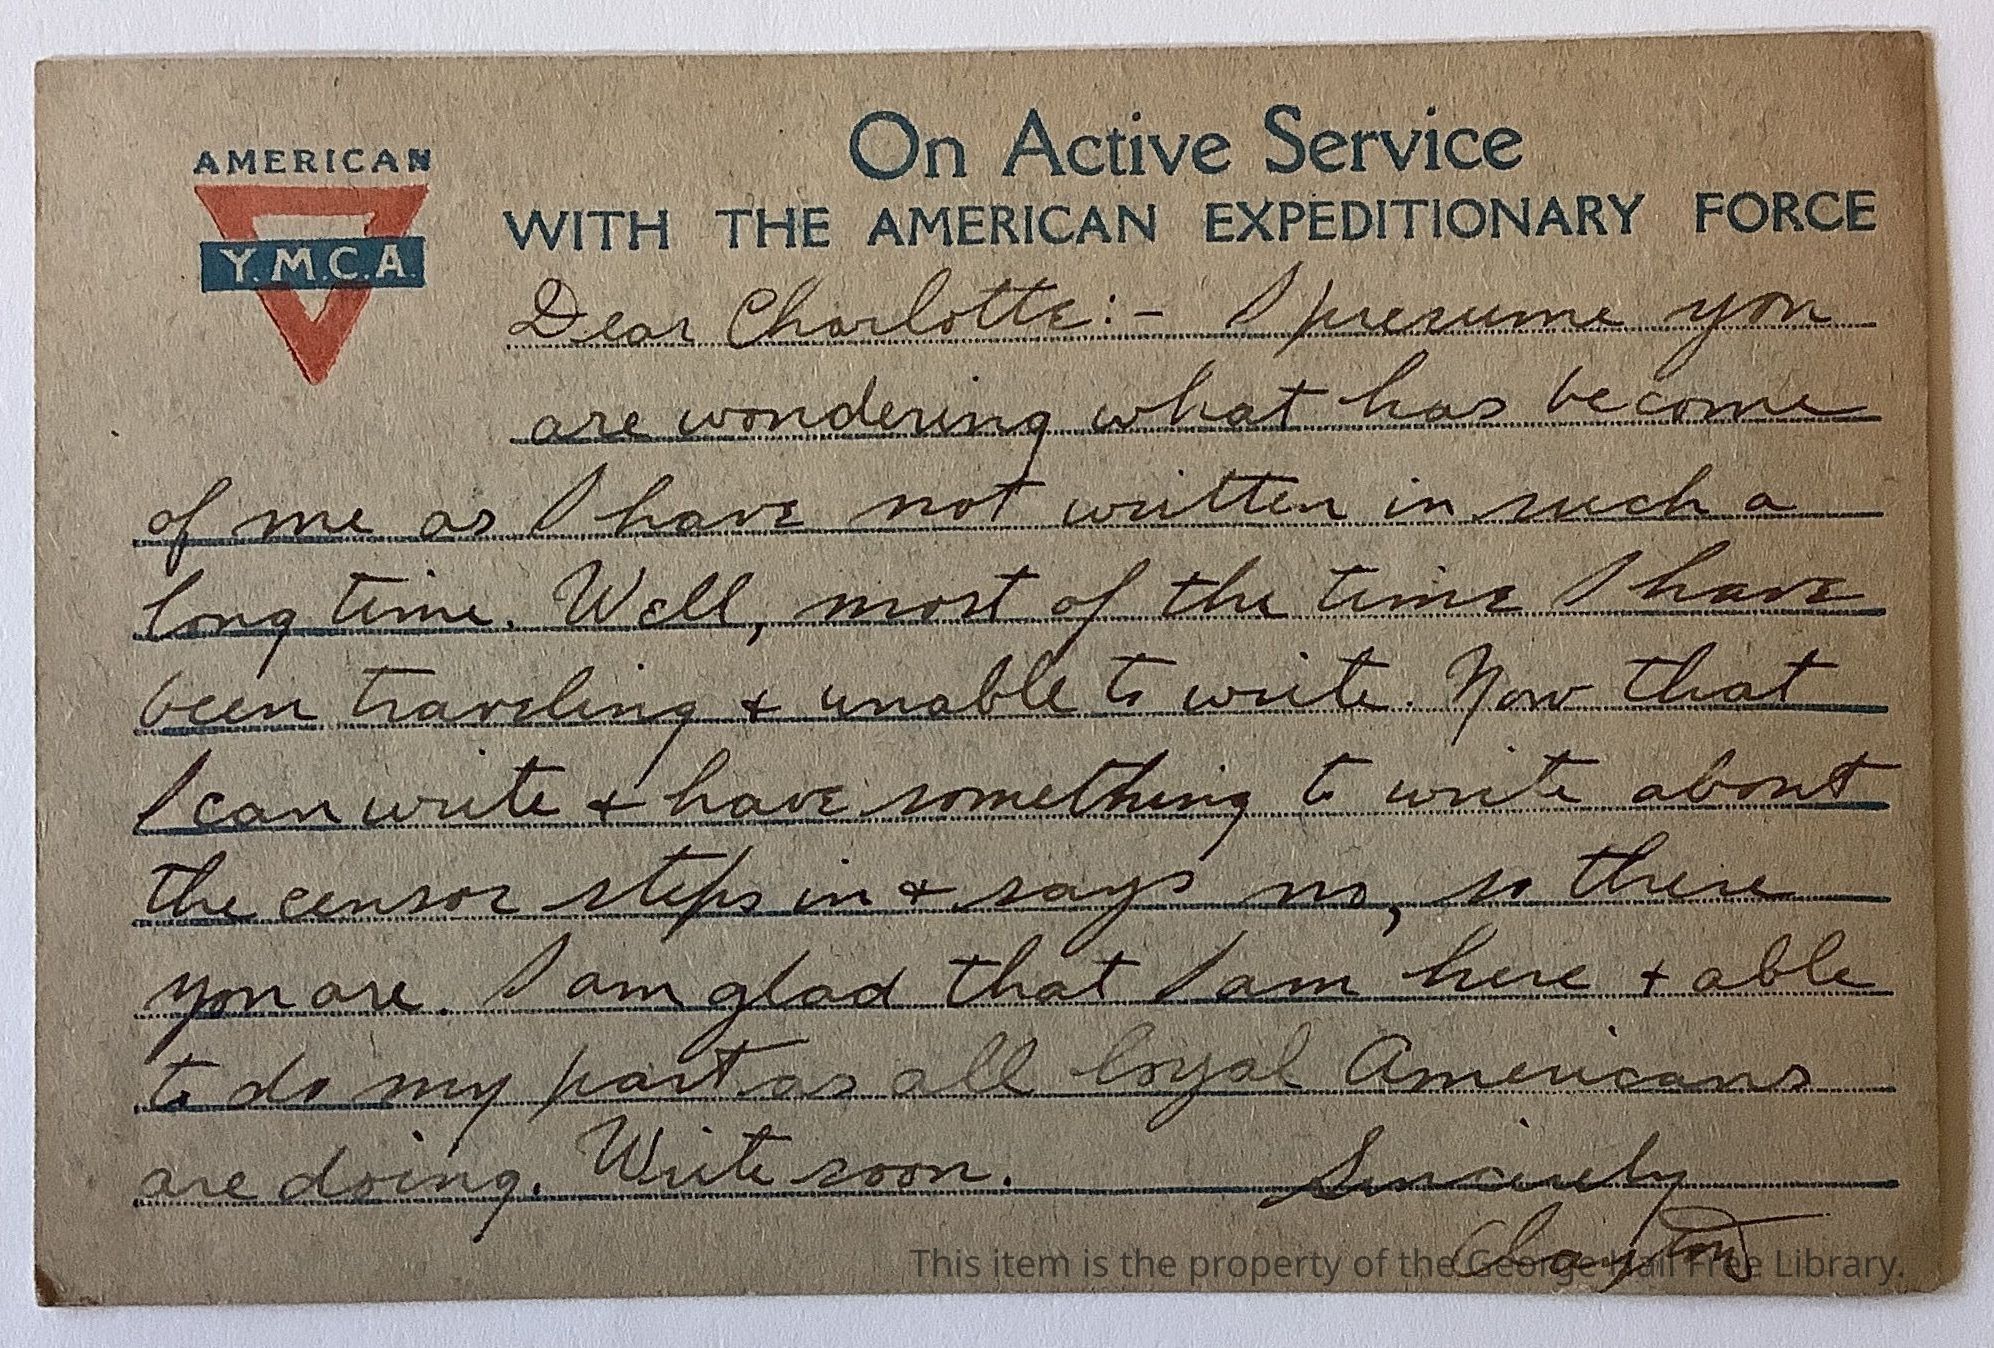 AMERICAN
Y.M.C.A.
On Active Service
WITH THE AMERICAN EXPEDITIONARY FORCE
Dear Charlotte:- I presume you
are wondering what has become
of me as I have not written in such a
long time. Well, most of the time I have
been traveling + unable to write. Now that
I can write + have something to write about
the censor steps in + says no, so there
you are. I am glad that I am here + able
to do my part as all loyal Americans
are doing. Write soon. Sincerely
Clayton
This item is the property of the George Hail Free Library.